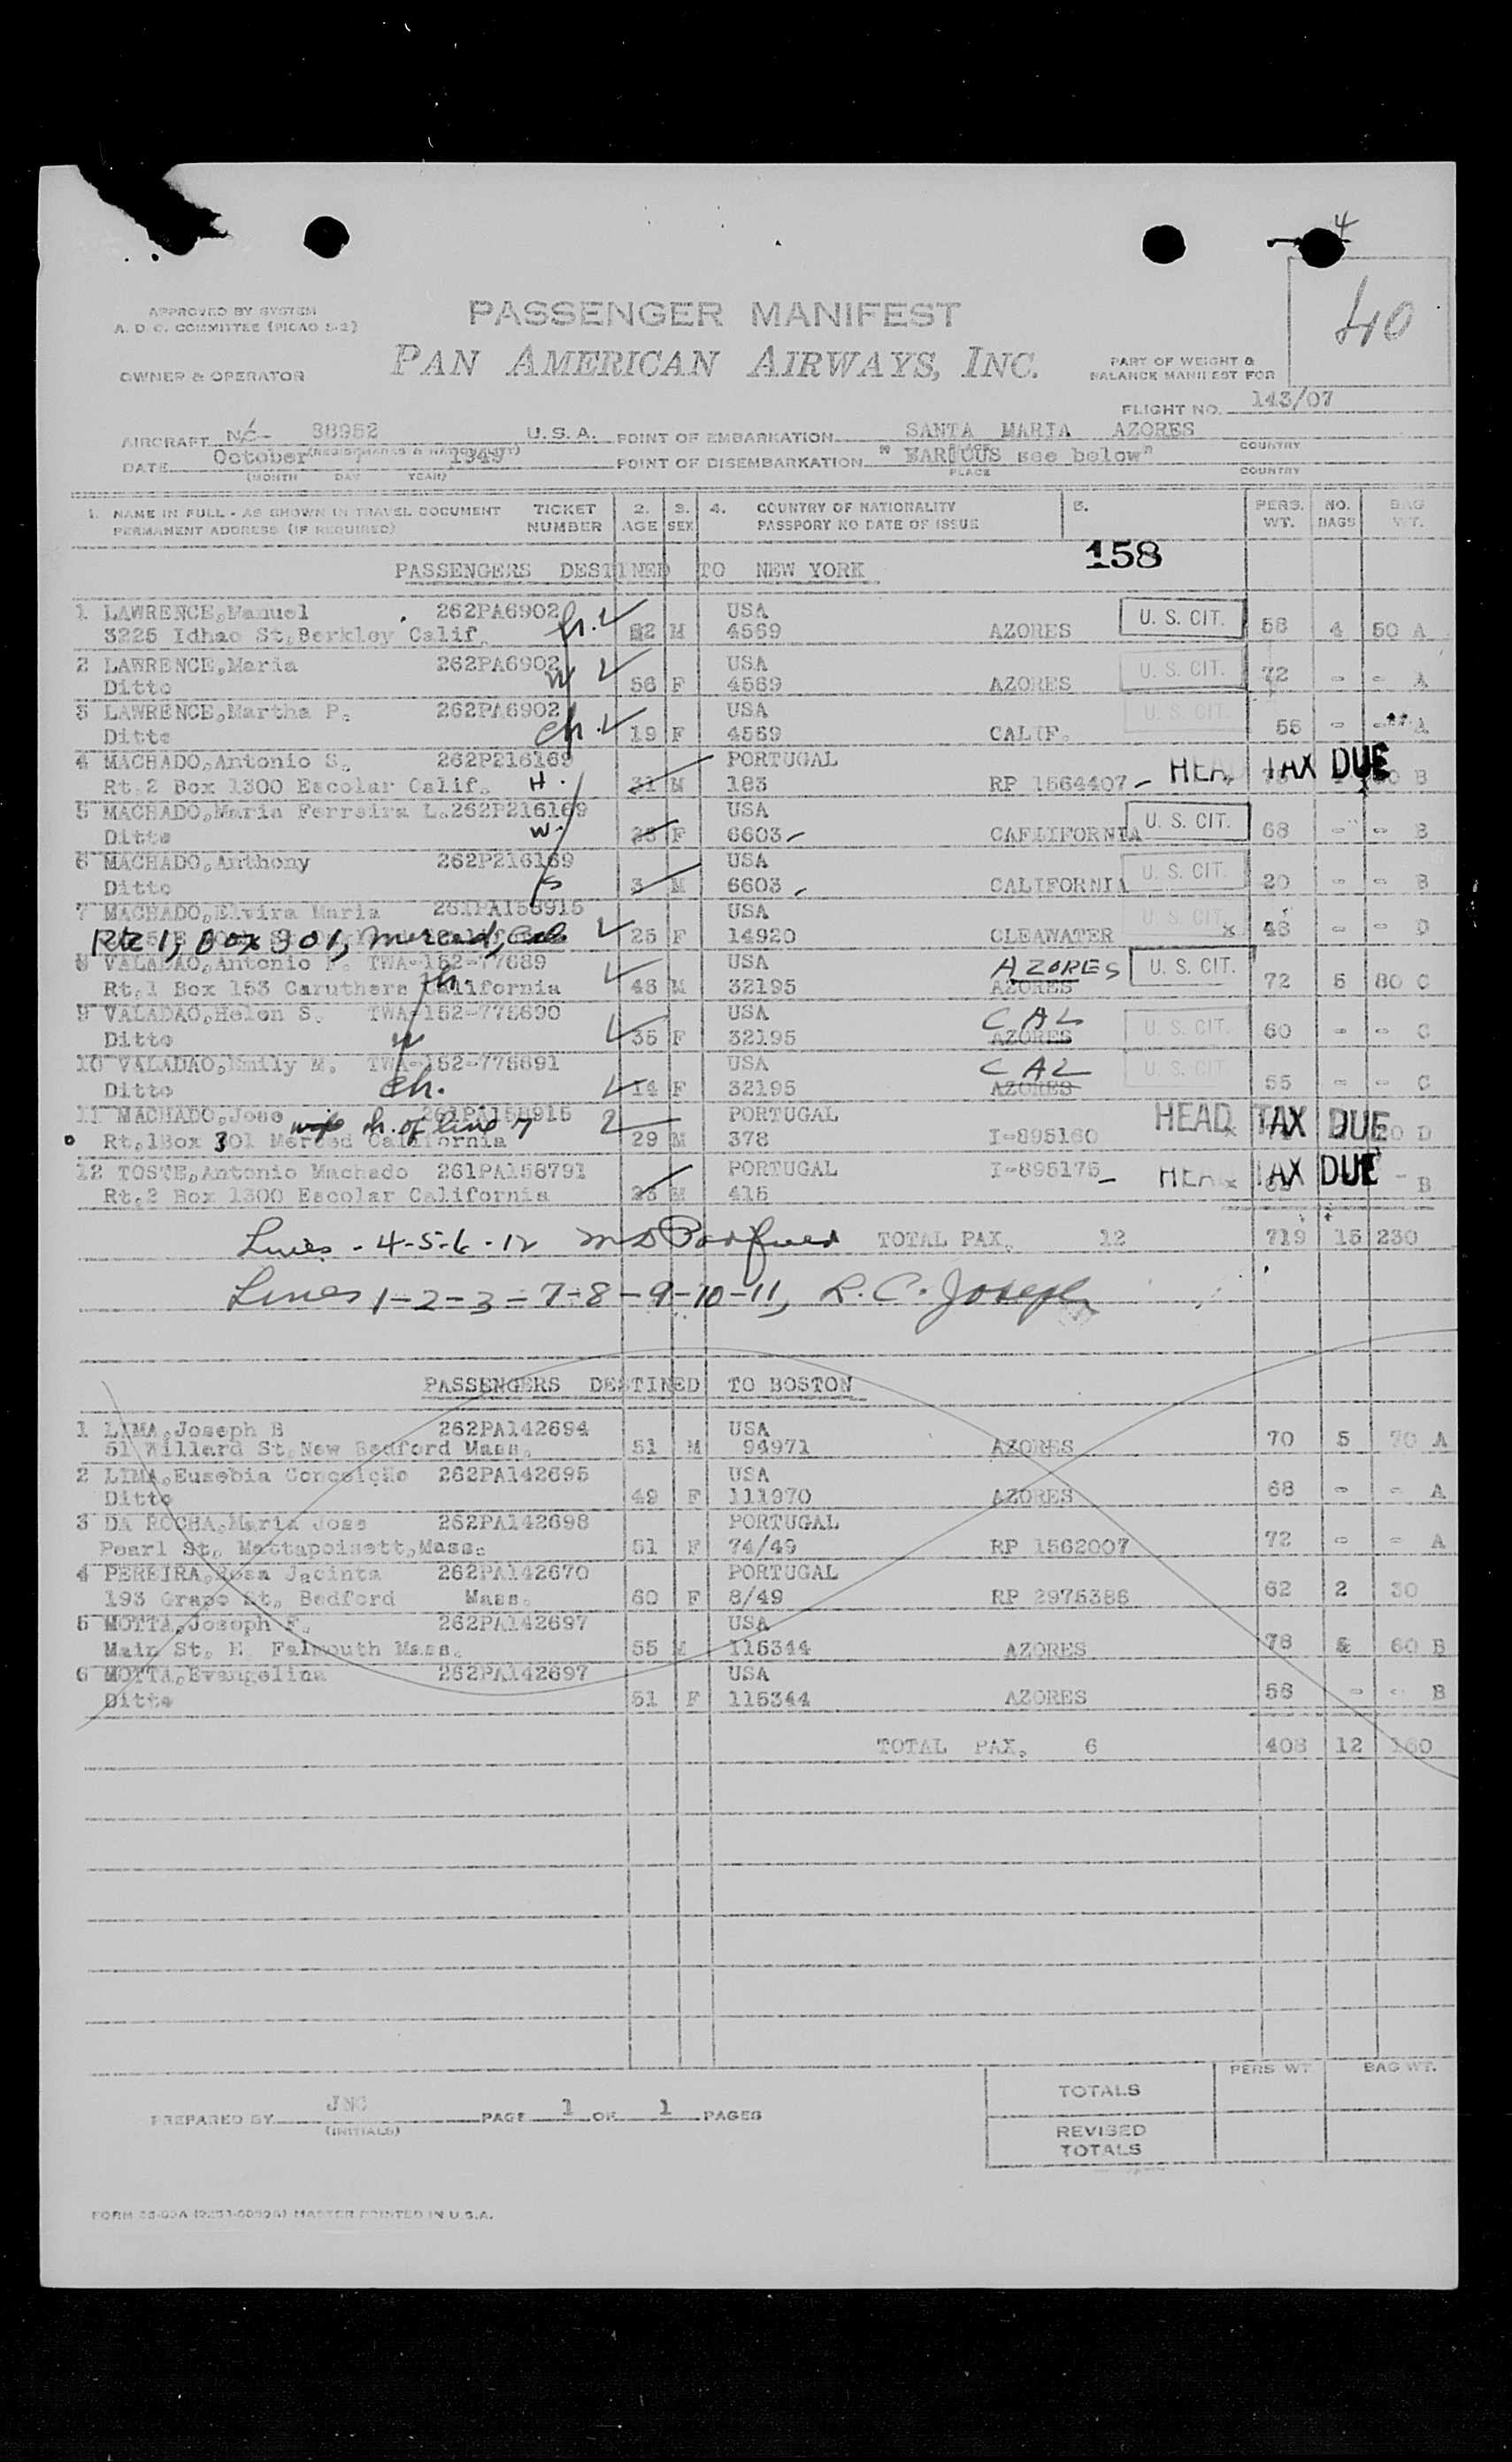 4
40
APPROVED BY SYSTEM
A. D. C. COMMITTEE (PICAO S-2)
OWNER & OPERATOR
PASSENGER MANIFEST
PAN AMERICAN AIRWAYS, INC.
PART OF WEIGHT &
BALANCE MANIFEST FOR
FLIGHT NO. 143/07
AIRCRAFT NC- 88952 U. S. A. POINT OF EMBARKATION SANTA MARIA AZORES
DATE October 1949 POINT OF DISEMBARKATION " VARIOUS see below"
(MONTH DAY YEAR) PLACE COUNTRY
1. NAME IN FULL - AS SHOWN IN TRAVEL DOCUMENT TICKET 2. 3. 4. COUNTRY OF NATIONALITY 5. PERS. NO. BAG
PERMANENT ADDRESS (IF REQUIRED) NUMBER AGE SEX PASSPORT NO DATE OF ISSUE WT. BAGS WT.
158
PASSENGERS DESTINED TO NEW YORK
1 LAWRENCE,Manuel 262PA6902 h. USA U. S. CIT.
3225 Idhao St,Berkley Calif. 62 M 4569 AZORES 58 4 50 A
2 LAWRENCE,Maria 262PA6902 w USA U. S. CIT.
Ditto 56 F 4569 AZORES 72 - - A
3 LAWRENCE,Martha P. 262PA6902 USA U. S. CIT.
Ditto ch. 19 F 4569 CALIF. 55 - - A
4 MACHADO,Antonio S. 262P216169 PORTUGAL HEAD TAX DUE
Rt.2 Box 1300 Escolar Calif. H. 31 M 183 RP 1564407 B
5 MACHADO,Maria Ferreira L.262P216169 USA U. S. CIT.
Ditto w. 28 F 6603 CAFLIFORNIA 68 - - B
6 MACHADO,Anthony 262P216169 USA U. S. CIT.
Ditto s 3 M 6603 CALIFORNIA 20 - - B
7 MACHADO,Elvira Maria 261PA158915 USA U. S. CIT.
Rte 1, Box 301, Merced, Cal 25 F 14920 CLEAWATER x 48 - - D
8 VALADAO,Antonio F. TWA-152-77689 USA AZORES U. S. CIT.
Rt.1 Box 153 Caruthers California h. 48 M 32195 AZORES 72 5 80 C
9 VALADAO,Helen S. TWA-152-775690 USA CAL U. S. CIT.
Ditto w 35 F 32195 AZORES 60 - - C
10 VALADAO,Emily M. TWA-152-775691 USA CAL U. S. CIT.
Ditto ch. 14 F 32195 AZORES 55 - - C
11 MACHADO,Jose 261PA158915 h. of line 7 PORTUGAL HEAD TAX DUE
Rt.1Box 301 Merced California 29 M 378 I-895160 x D
12 TOSTE,Antonio Machado 261PA158791 PORTUGAL I-895175 HEAD TAX DUE
Rt.2 Box 1300 Escolar California 23 M 415 x - B
Lines - 4-5-6-12 TOTAL PAX. 12 719 15 230
Lines 1-2-3-7-8-9-10-11, L. C. Joseph
PASSENGERS DESTINED TO BOSTON
1 LIMA,Joseph B 262PA142694 USA
51 Willard St.New Bedford Mass. 51 M 94971 AZORES 70 5 70 A
2 LIMA,Eusebia Conceição 262PA142695 USA
Ditto 49 F 111970 AZORES 68 - - A
3 DA ROCHA,Maria Jose 262PA142698 PORTUGAL
Pearl St, Mattapoisett,Mass. 51 F 74/49 RP 1562007 72 - - A
4 PEREIRA,Rosa Jacinta 262PA142670 PORTUGAL
193 Grape St, Bedford Mass. 60 F 8/49 RP 2975386 62 2 30
5 MOTTA,Joseph F. 262PA142697 USA
Main St, E. Falmouth Mass. 55 M 115344 AZORES 78 & 60 B
6 MOTTA,Evangelina 262PA142697 USA
Ditto 51 F 115344 AZORES 58 - - B
TOTAL PAX. 6 408 12 160
PERS WT BAG WT.
TOTALS
PREPARED BY JNC PAGE 1 OF 1 PAGES
(INITIALS)
REVISED
TOTALS
MASTER PRINTED IN U.S.A.